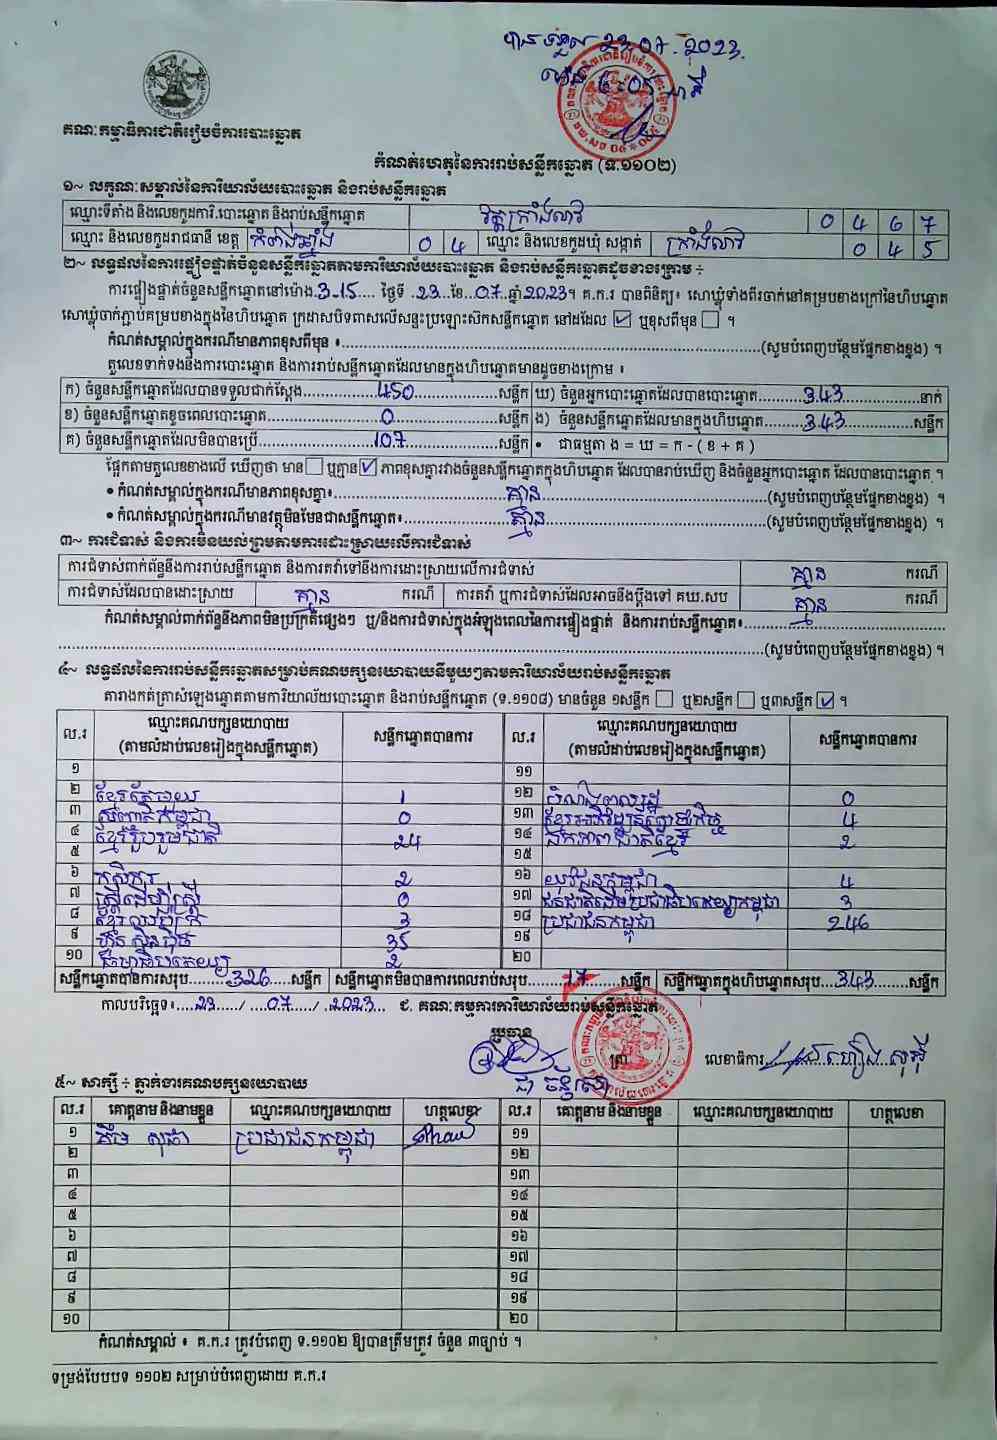 បានទទួល 23.07.2023.
គណៈកម្មាធិការជាតិរៀបចំការបោះឆ្នោត
កំណត់ហេតុនៃការរាប់សន្លឹកឆ្នោត (ទ.១១០២)
១~ លក្ខណៈសម្គាល់នៃការិយាល័យបោះឆ្នោត និងរាប់សន្លឹកឆ្នោត
ឈ្មោះទីតាំង និងលេខកូដការិ.បោះឆ្នោត និងរាប់សន្លឹកឆ្នោត វត្តក្រាំងលាវ 0 4 6 7
ឈ្មោះ និងលេខកូដរាជធានី ខេត្ត កំពង់ឆ្នាំង 0 4 ឈ្មោះ និងលេខកូដឃុំ សង្កាត់ ក្រាំងលាវ 0 4 5
២~ លទ្ធផលនៃការផ្ទៀងផ្ទាត់ចំនួនសន្លឹកឆ្នោតតាមការិយាល័យបោះឆ្នោត និងរាប់សន្លឹកឆ្នោតដូចខាងក្រោម ៖
ការផ្ទៀងផ្ទាត់ចំនួនសន្លឹកឆ្នោតនៅម៉ោង.3-15.... ថ្ងៃទី .23...ខែ.07..ឆ្នាំ.2023។ គ.ក.រ បានពិនិត្យ៖ សោឃ្លុំទាំងពីរចាក់នៅគម្របខាងក្រៅនៃហិបឆ្នោត
សោឃ្លុំចាក់ភ្ជាប់គម្របខាងក្នុងនៃហិបឆ្នោត ក្រដាសបិទពាសលើសន្ទះប្រឡោះសិកសន្លឹកឆ្នោត នៅដដែល ☑ ឬខុសពីមុន ☐ ។
កំណត់សម្គាល់ក្នុងករណីមានភាពខុសពីមុន ៖..........(សូមបំពេញបន្ថែមផ្នែកខាងខ្នង) ។
តួលេខទាក់ទងនឹងការបោះឆ្នោត និងការរាប់សន្លឹកឆ្នោតដែលមានក្នុងហិបឆ្នោតមានដូចខាងក្រោម ៖
ក) ចំនួនសន្លឹកឆ្នោតដែលបានទទួលជាក់ស្តែង..........450..........សន្លឹក ឃ) ចំនួនអ្នកបោះឆ្នោតដែលបានបោះឆ្នោត..........343..........នាក់
ខ) ចំនួនសន្លឹកឆ្នោតខូចពេលបោះឆ្នោត..........0..........សន្លឹក ង) ចំនួនសន្លឹកឆ្នោតដែលមានក្នុងហិបឆ្នោត..........343..........សន្លឹក
គ) ចំនួនសន្លឹកឆ្នោតដែលមិនបានប្រើ..........107..........សន្លឹក • ជាធម្មតា ង = ឃ = ក - ( ខ + គ )
ផ្អែកតាមតួលេខខាងលើ ឃើញថា មាន ☐ ឬគ្មាន ☑ ភាពខុសគ្នារវាងចំនួនសន្លឹកឆ្នោតក្នុងហិបឆ្នោត ដែលបានរាប់ឃើញ និងចំនួនអ្នកបោះឆ្នោត ដែលបានបោះឆ្នោត ។
• កំណត់សម្គាល់ក្នុងករណីមានភាពខុសគ្នា៖..........គ្មាន..........(សូមបំពេញបន្ថែមផ្នែកខាងខ្នង) ។
• កំណត់សម្គាល់ក្នុងករណីមានវត្ថុមិនមែនជាសន្លឹកឆ្នោត៖..........គ្មាន..........(សូមបំពេញបន្ថែមផ្នែកខាងខ្នង) ។
៣~ ការជំទាស់ និងការមិនយល់ព្រមតាមការដោះស្រាយលើការជំទាស់
ការជំទាស់ពាក់ព័ន្ធនឹងការរាប់សន្លឹកឆ្នោត និងការតវ៉ាទៅនឹងការដោះស្រាយលើការជំទាស់ គ្មាន ករណី
ការជំទាស់ដែលបានដោះស្រាយ គ្មាន ករណី ការតវ៉ា ឬការជំទាស់ដែលអាចនឹងប្តឹងទៅ គឃ.សប គ្មាន ករណី
កំណត់សម្គាល់ពាក់ព័ន្ធនឹងភាពមិនប្រក្រតីផ្សេងៗ ឬ/និងការជំទាស់ក្នុងអំឡុងពេលនៃការផ្ទៀងផ្ទាត់ និងការរាប់សន្លឹកឆ្នោត៖..........
..........(សូមបំពេញបន្ថែមផ្នែកខាងខ្នង) ។
៤~ លទ្ធផលនៃការរាប់សន្លឹកឆ្នោតសម្រាប់គណបក្សនយោបាយនីមួយៗតាមការិយាល័យរាប់សន្លឹកឆ្នោត
តារាងកត់ត្រាសំឡេងឆ្នោតតាមការិយាល័យបោះឆ្នោត និងរាប់សន្លឹកឆ្នោត (ទ.១១០៨) មានចំនួន ១សន្លឹក ☐ ឬ២សន្លឹក ☐ ឬ៣សន្លឹក ☑ ។
ល.រ ឈ្មោះគណបក្សនយោបាយ (តាមលំដាប់លេខរៀងក្នុងសន្លឹកឆ្នោត) សន្លឹកឆ្នោតបានការ ល.រ ឈ្មោះគណបក្សនយោបាយ (តាមលំដាប់លេខរៀងក្នុងសន្លឹកឆ្នោត) សន្លឹកឆ្នោតបានការ
១ ១១
២ ខ្មែរតែមួយ 1 ១២ សំណាងពលរដ្ឋ 0
៣ សញ្ជាតិកម្ពុជា 0 ១៣ ខ្មែរអភិវឌ្ឍន៍សេដ្ឋកិច្ច 4
៤ ខ្មែររួបរួមជាតិ 24 ១៤ ឯកភាពជាតិខ្មែរ 2
៥ ១៥
៦ កសិករ 2 ១៦ យុវជនកម្ពុជា 4
៧ ស្ត្រីដើម្បីស្ត្រី 0 ១៧ ជនជាតិដើមប្រជាធិបតេយ្យកម្ពុជា 3
៨ ខ្មែរឈប់ក្រ 3 ១៨ ប្រជាជនកម្ពុជា 246
៩ ហ៊្វុនស៊ិនប៉ិច 35 ១៩
១០ ធម្មាធិបតេយ្យ 2 ២០
សន្លឹកឆ្នោតបានការសរុប........326.....សន្លឹក សន្លឹកឆ្នោតមិនបានការពេលរាប់សរុប........17........សន្លឹក សន្លឹកឆ្នោតក្នុងហិបឆ្នោតសរុប...343........សន្លឹក
កាលបរិច្ឆេទ៖....23...../ ....07...../ .2023... ជ. គណៈកម្មការការិយាល័យរាប់សន្លឹកឆ្នោត
ប្រធាន
ត្រា លេខាធិការ
៥~ សាក្សី ÷ ភ្នាក់ងារគណបក្សនយោបាយ
ល.រ គោត្តនាម និងនាមខ្លួន ឈ្មោះគណបក្សនយោបាយ ហត្ថលេខា ល.រ គោត្តនាម និងនាមខ្លួន ឈ្មោះគណបក្សនយោបាយ ហត្ថលេខា
១ គឹម សុផា ប្រជាជនកម្ពុជា ១១
២ ១២
៣ ១៣
៤ ១៤
៥ ១៥
៦ ១៦
៧ ១៧
៨ ១៨
៩ ១៩
១០ ២០
កំណត់សម្គាល់ ៖ គ.ក.រ ត្រូវបំពេញ ទ.១១០២ ឱ្យបានត្រឹមត្រូវ ចំនួន ៣ច្បាប់ ។
ទម្រង់បែបបទ ១១០២ សម្រាប់បំពេញដោយ គ.ក.រ